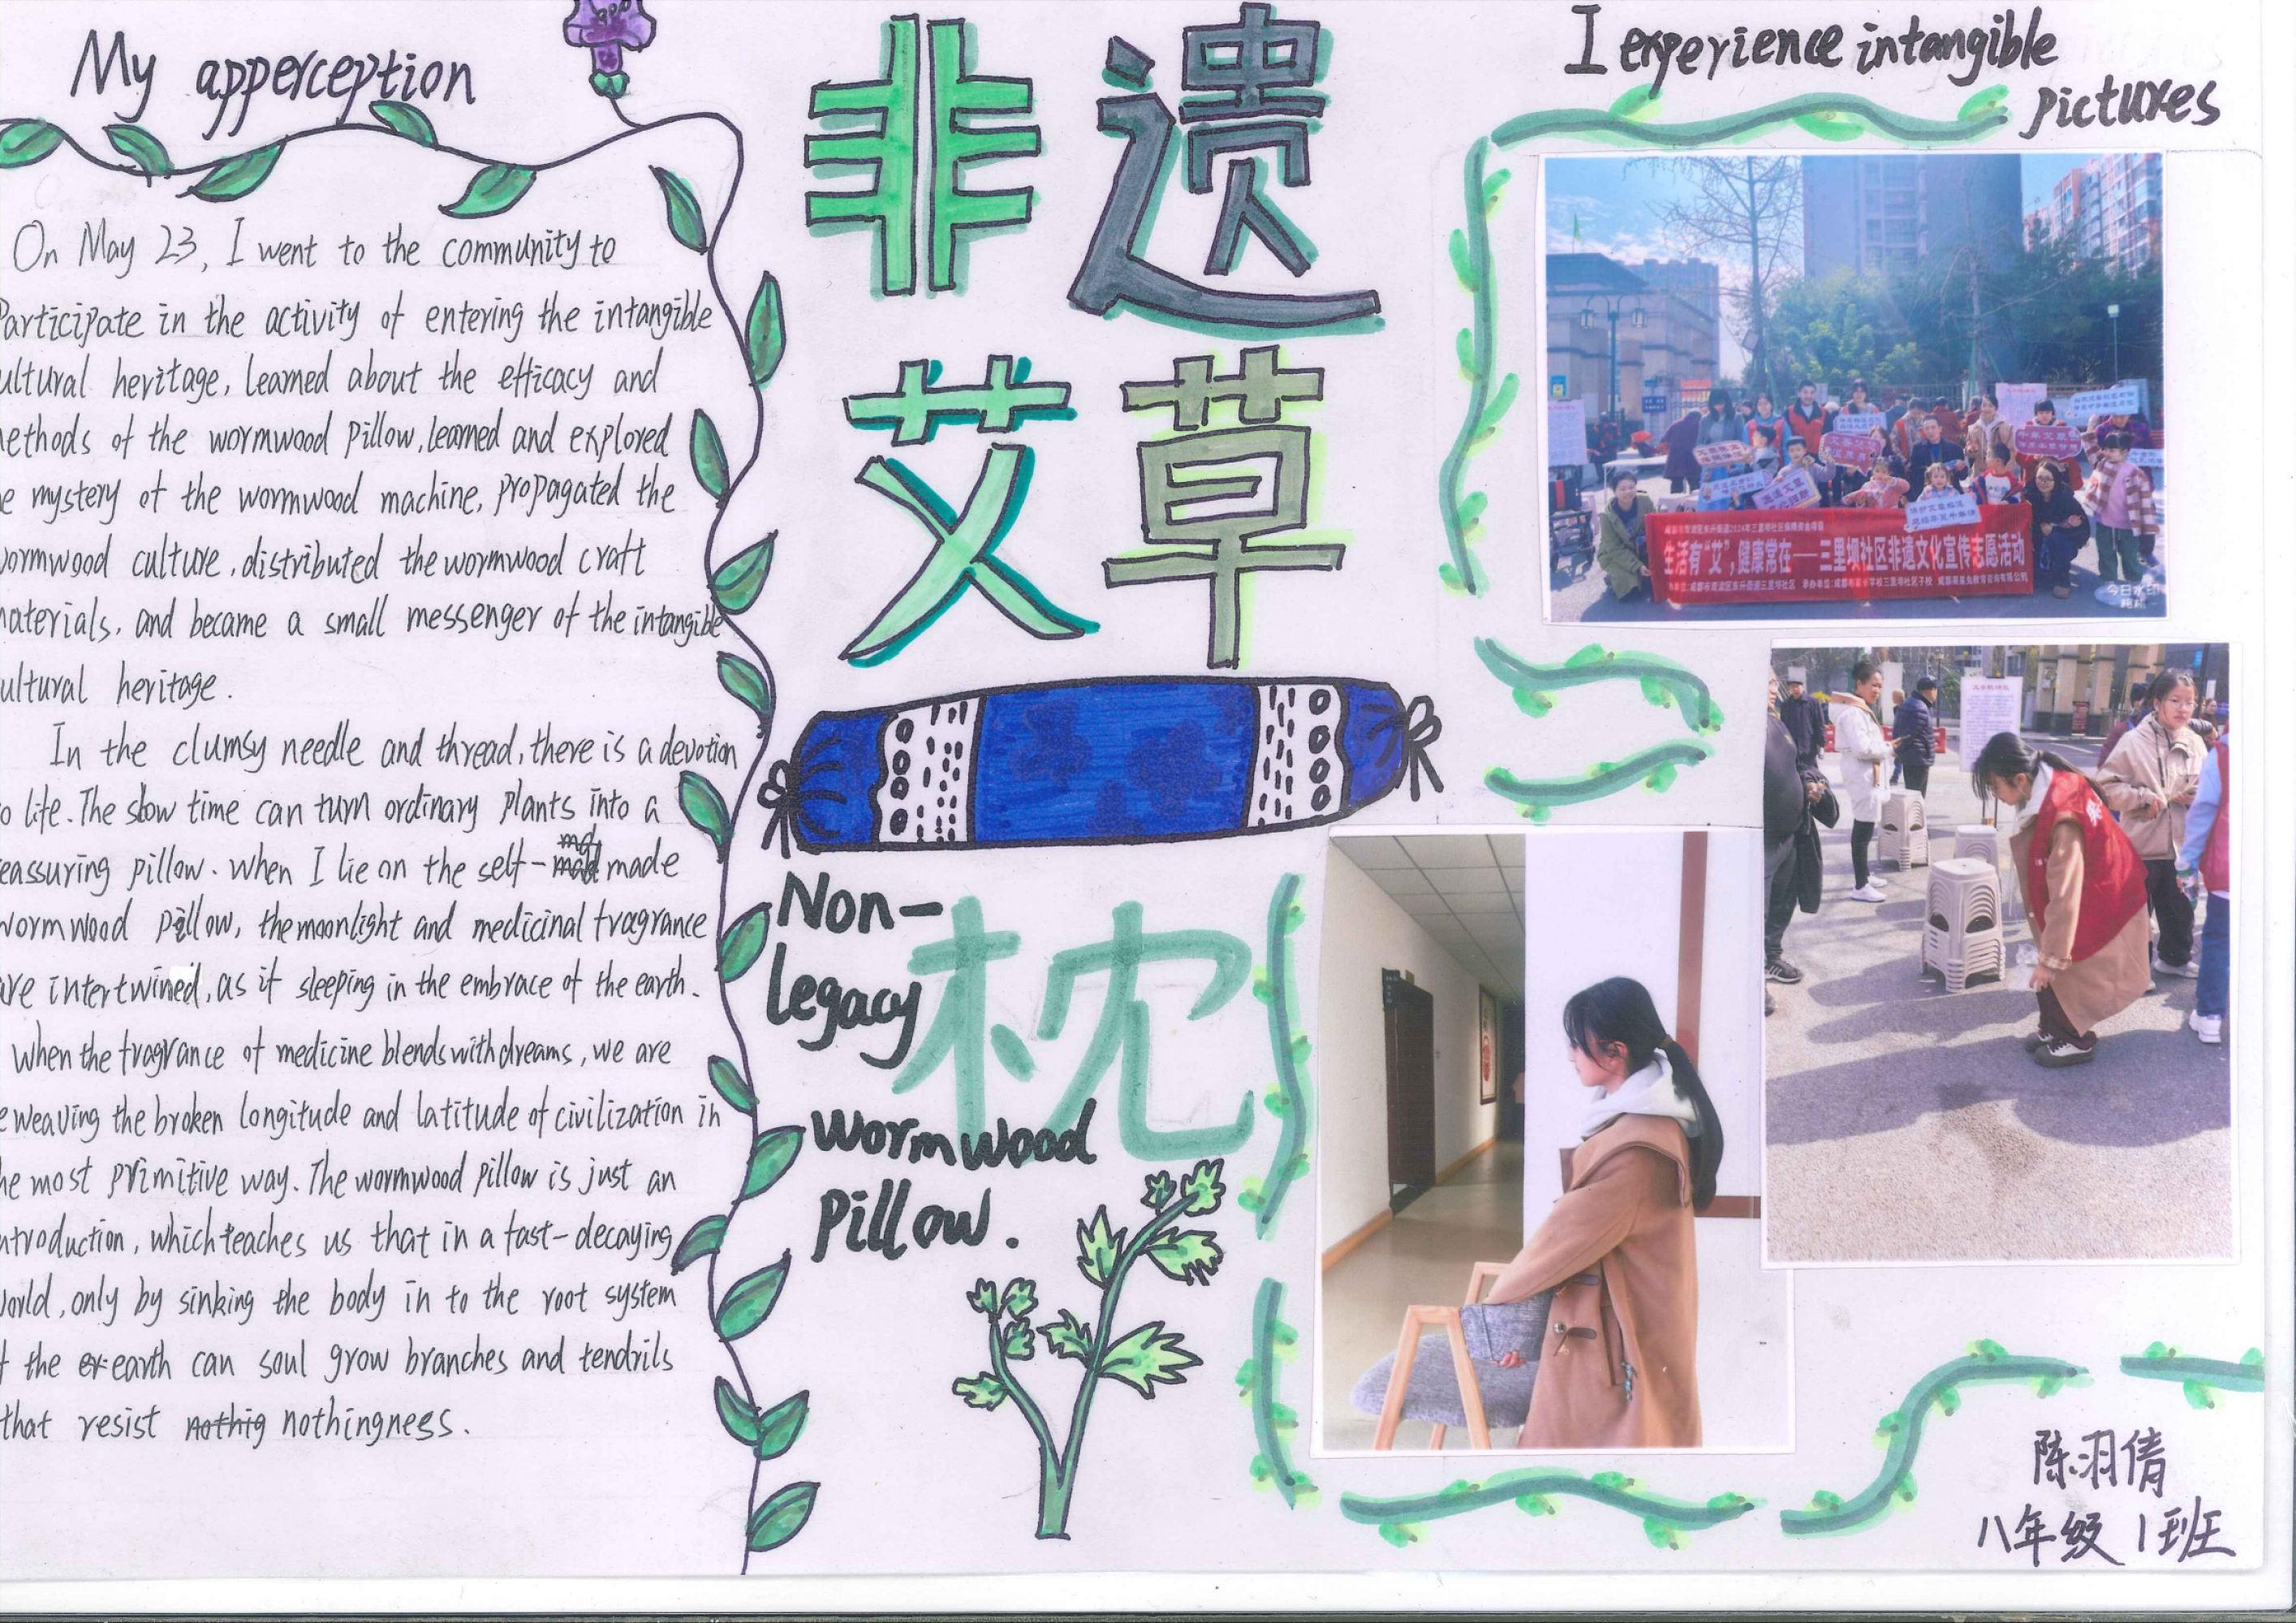 My apperception
On May 23, I went to the community to
Participate in the activity of entering the intangible
ultural heritage, learned about the efficacy and
ethods of the wormwood pillow, learned and explored
e mystery of the wormwood machine, propagated the
wormwood culture, distributed the wormwood craft
materials, and became a small messenger of the intangible
ultural heritage.
In the clumsy needle and thread, there is a devotion
o life. The slow time can turn ordinary plants into a
eassuring pillow. when I lie on the self-made
wormwood pillow, the moonlight and medicinal fragrance
are intertwined, as if sleeping in the embrace of the earth.
When the fragrance of medicine blends with dreams, we are
eweaving the broken longitude and latitude of civilization in
he most primitive way. The wormwood pillow is just an
ntroduction, which teaches us that in a fast-decaying
world, only by sinking the body in to the root system
f the earth can soul grow branches and tendrils
that resist nothig nothingness.
非遗
艾草
枕
Non-
legacy
wormwood
pillow.
I experience intangible
pictures
生活有“艾”,健康常在——三里坝社区非遗文化宣传志愿活动
今日水印
陈羽倩
八年级1班